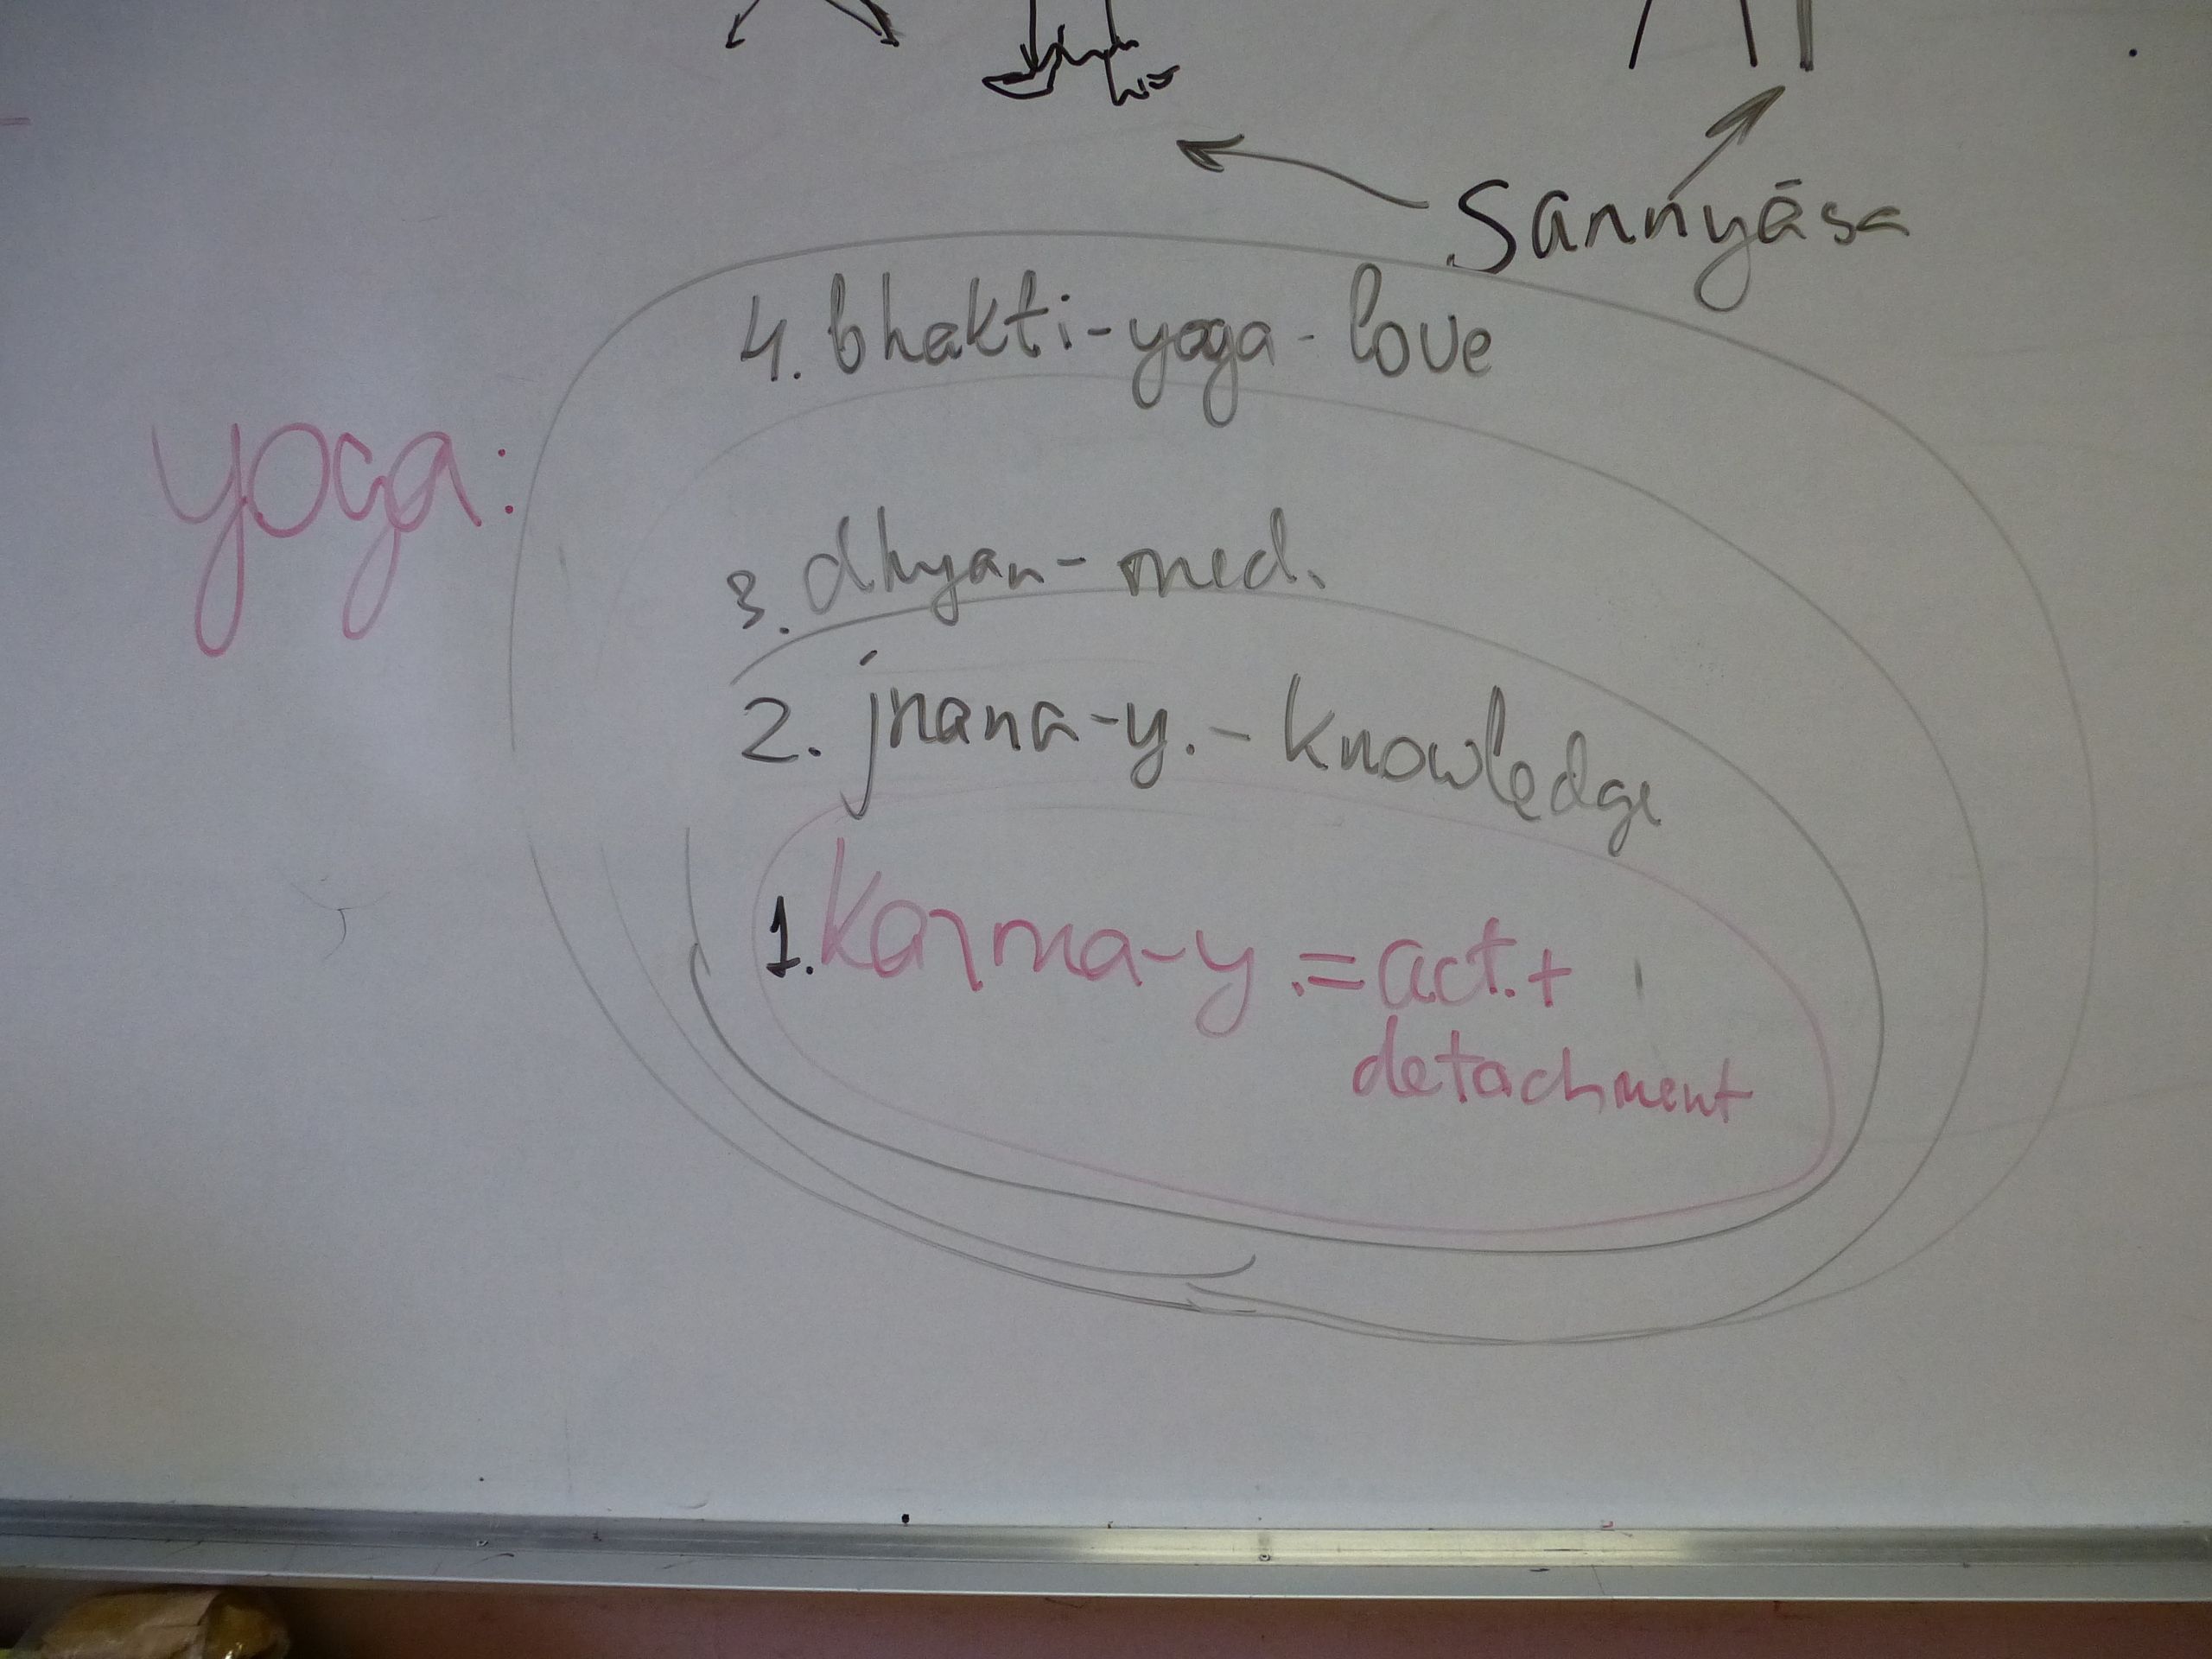 Sannyāsa
4. bhakti-yoga - love
yoga:
3. dhyan - med.
2. jnana-y. - knowledge
1. Karma-y. = act. +
detachment